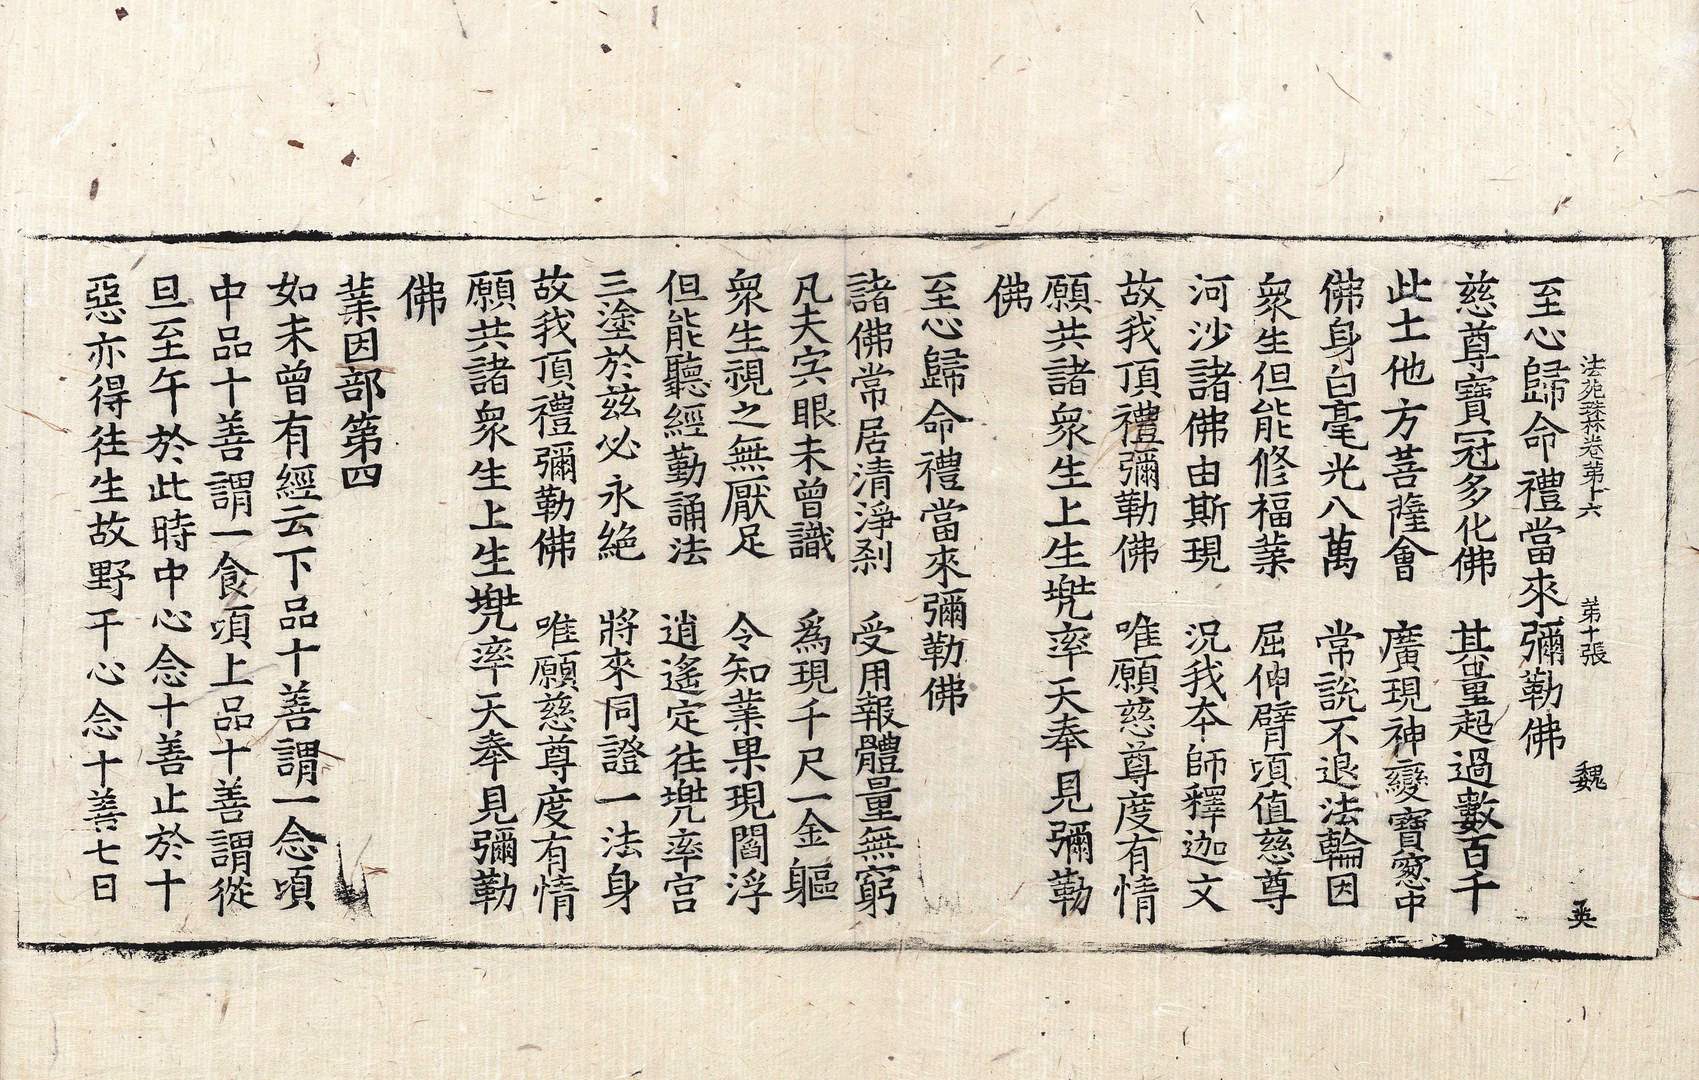 法苑珠林卷第十六　第十張　魏　英
至心歸命禮當來彌勒佛
慈尊寶冠多化佛　其量超過數百千
此土他方菩薩會　廣現神變寶窓中
佛身白毫光八萬　常說不退法輪因
衆生但能修福業　屈伸臂頃值慈尊
河沙諸佛由斯現　況我本師釋迦文
故我頂禮彌勒佛　唯願慈尊度有情
願共諸衆生上生兠率天奉見彌勒
佛
至心歸命禮當來彌勒佛
諸佛常居清淨刹　受用報體量無窮
凡夫宍眼未曾識　爲現千尺一金軀
衆生視之無厭足　令知業果現閻浮
但能聽經勤誦法　逍遙定往兠率宫
三塗於茲必永絶　將來同證一法身
故我頂禮彌勒佛　唯願慈尊度有情
願共諸衆生上生兠率天奉見彌勒
佛
業因部第四
如未曾有經云下品十善謂一念頃
中品十善謂一食頃上品十善謂從
旦至午於此時中心念十善止於十
惡亦得往生故野干心念十善七日